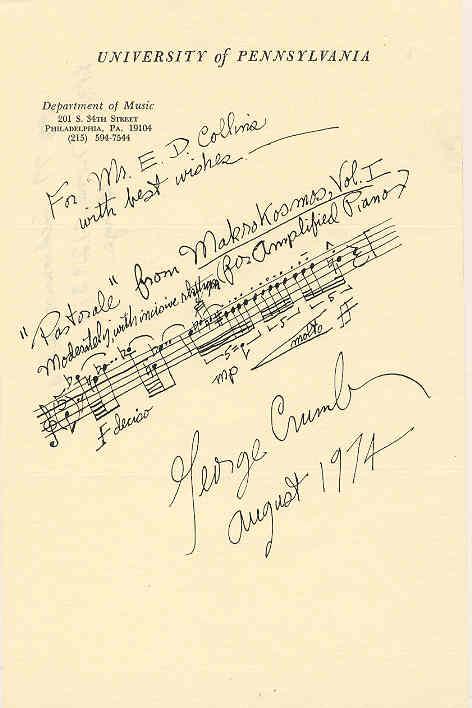 UNIVERSITY of PENNSYLVANIA
Department of Music
201 S. 34TH STREET
PHILADELPHIA, PA. 19104
(215) 594-7544
For Mr. E. D. Collins
with best wishes.
"Pastorale" from Makrokosmos, Vol. I
(for Amplified Piano)
Moderately, with incisive rhythm
5
5
5
f deciso
mp
molto
ff
George Crumb
August 1974